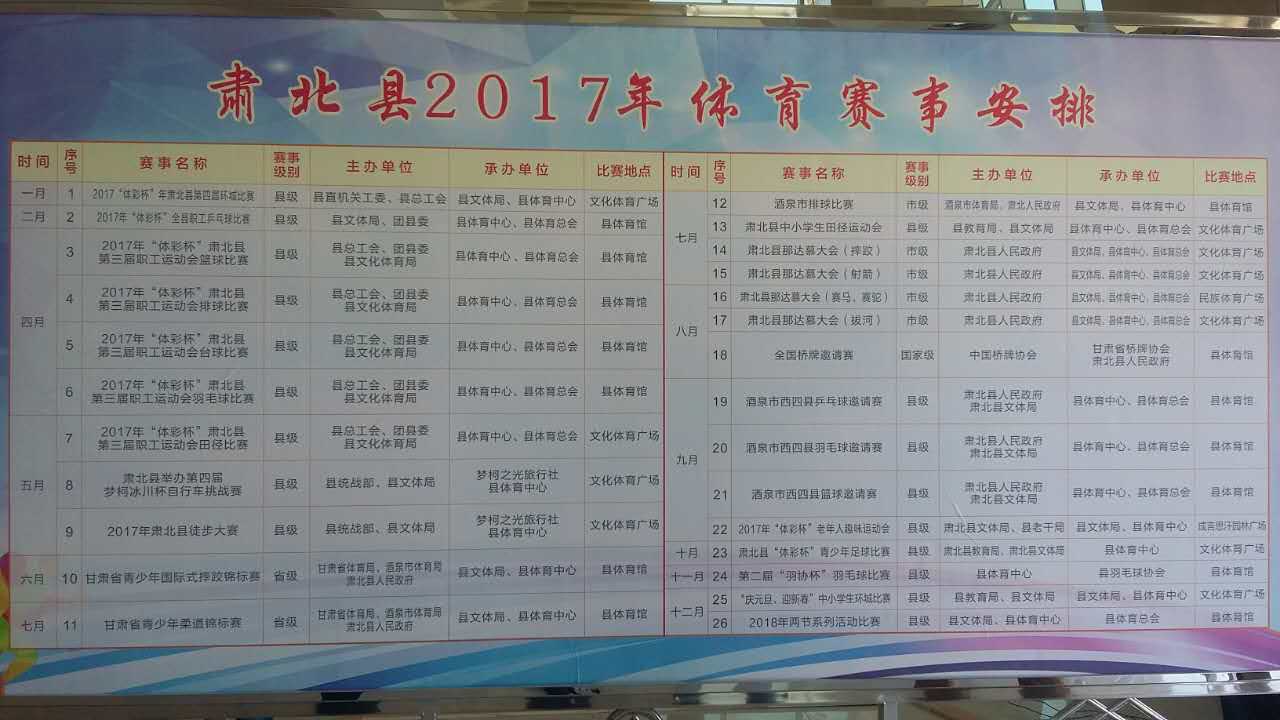 肃北县2017年体育赛事安排
时间 序号 赛事名称 赛事级别 主办单位 承办单位 比赛地点
一月 1 2017“体彩杯”年肃北县第四届环城比赛 县级 县直机关工委、县总工会 县文体局、县体育中心 文化体育广场
二月 2 2017年“体彩杯”全县职工乒乓球比赛 县级 县文体局、团县委 县体育中心、县体育总会 县体育馆
四月 3 2017年“体彩杯”肃北县第三届职工运动会篮球比赛 县级 县总工会、团县委 县文化体育局 县体育中心、县体育总会 县体育馆
4 2017年“体彩杯”肃北县第三届职工运动会排球比赛 县级 县总工会、团县委 县文化体育局 县体育中心、县体育总会 县体育馆
5 2017年“体彩杯”肃北县第三届职工运动会台球比赛 县级 县总工会、团县委 县文化体育局 县体育中心、县体育总会 县体育馆
6 2017年“体彩杯”肃北县第三届职工运动会羽毛球比赛 县级 县总工会、团县委 县文化体育局 县体育中心、县体育总会 县体育馆
五月 7 2017年“体彩杯”肃北县第三届职工运动会田径比赛 县级 县总工会、团县委 县文化体育局 县体育中心、县体育总会 文化体育广场
8 肃北县举办第四届梦柯冰川杯自行车挑战赛 县级 县统战部、县文体局 梦柯之光旅行社 县体育中心 文化体育广场
9 2017年肃北县徒步大赛 县级 县统战部、县文体局 梦柯之光旅行社 县体育中心 文化体育广场
六月 10 甘肃省青少年国际式摔跤锦标赛 省级 甘肃省体育局、酒泉市体育局 肃北县人民政府 县文体局、县体育中心 县体育馆
七月 11 甘肃省青少年柔道锦标赛 省级 甘肃省体育局、酒泉市体育局 肃北县人民政府 县文体局、县体育中心 县体育馆
时间 序号 赛事名称 赛事级别 主办单位 承办单位 比赛地点
七月 12 酒泉市排球比赛 市级 酒泉市体育局、肃北人民政府 县文体局、县体育中心 县体育馆
13 肃北县中小学生田径运动会 县级 县教育局、县文体局 县体育中心、县体育总会 文化体育广场
14 肃北县那达慕大会（摔跤） 市级 肃北县人民政府 县文体局、县体育中心、县体育总会 文化体育广场
15 肃北县那达慕大会（射箭） 市级 肃北县人民政府 县文体局、县体育中心、县体育总会 文化体育广场
八月 16 肃北县那达慕大会（赛马、赛驼） 市级 肃北县人民政府 县文体局、县体育中心、县体育总会 民族体育广场
17 肃北县那达慕大会（拔河） 市级 肃北县人民政府 县文体局、县体育中心、县体育总会 文化体育广场
18 全国桥牌邀请赛 国家级 中国桥牌协会 甘肃省桥牌协会 肃北县人民政府 县体育馆
九月 19 酒泉市西四县乒乓球邀请赛 县级 肃北县人民政府 肃北县文体局 县体育中心、县体育总会 县体育馆
20 酒泉市西四县羽毛球邀请赛 县级 肃北县人民政府 肃北县文体局 县体育中心、县体育总会 县体育馆
21 酒泉市西四县篮球邀请赛 县级 肃北县人民政府 肃北县文体局 县体育中心、县体育总会 县体育馆
22 2017年“体彩杯”老年人趣味运动会 县级 肃北县文体局、县老干局 县体育中心、县体育总会 成吉思汗园林广场
十月 23 肃北县“体彩杯”青少年足球比赛 县级 肃北县教育局、肃北县文体局 县体育中心 文化体育广场
十一月 24 第二届“羽协杯”羽毛球比赛 县级 县体育中心 县羽毛球协会 县体育馆
十二月 25 “庆元旦、迎新春”中小学生环城比赛 县级 县教育局、县文体局 县文体局、县体育中心 文化体育广场
26 2018年两节系列活动比赛 县级 县文体局、县体育中心 县体育总会 县体育馆